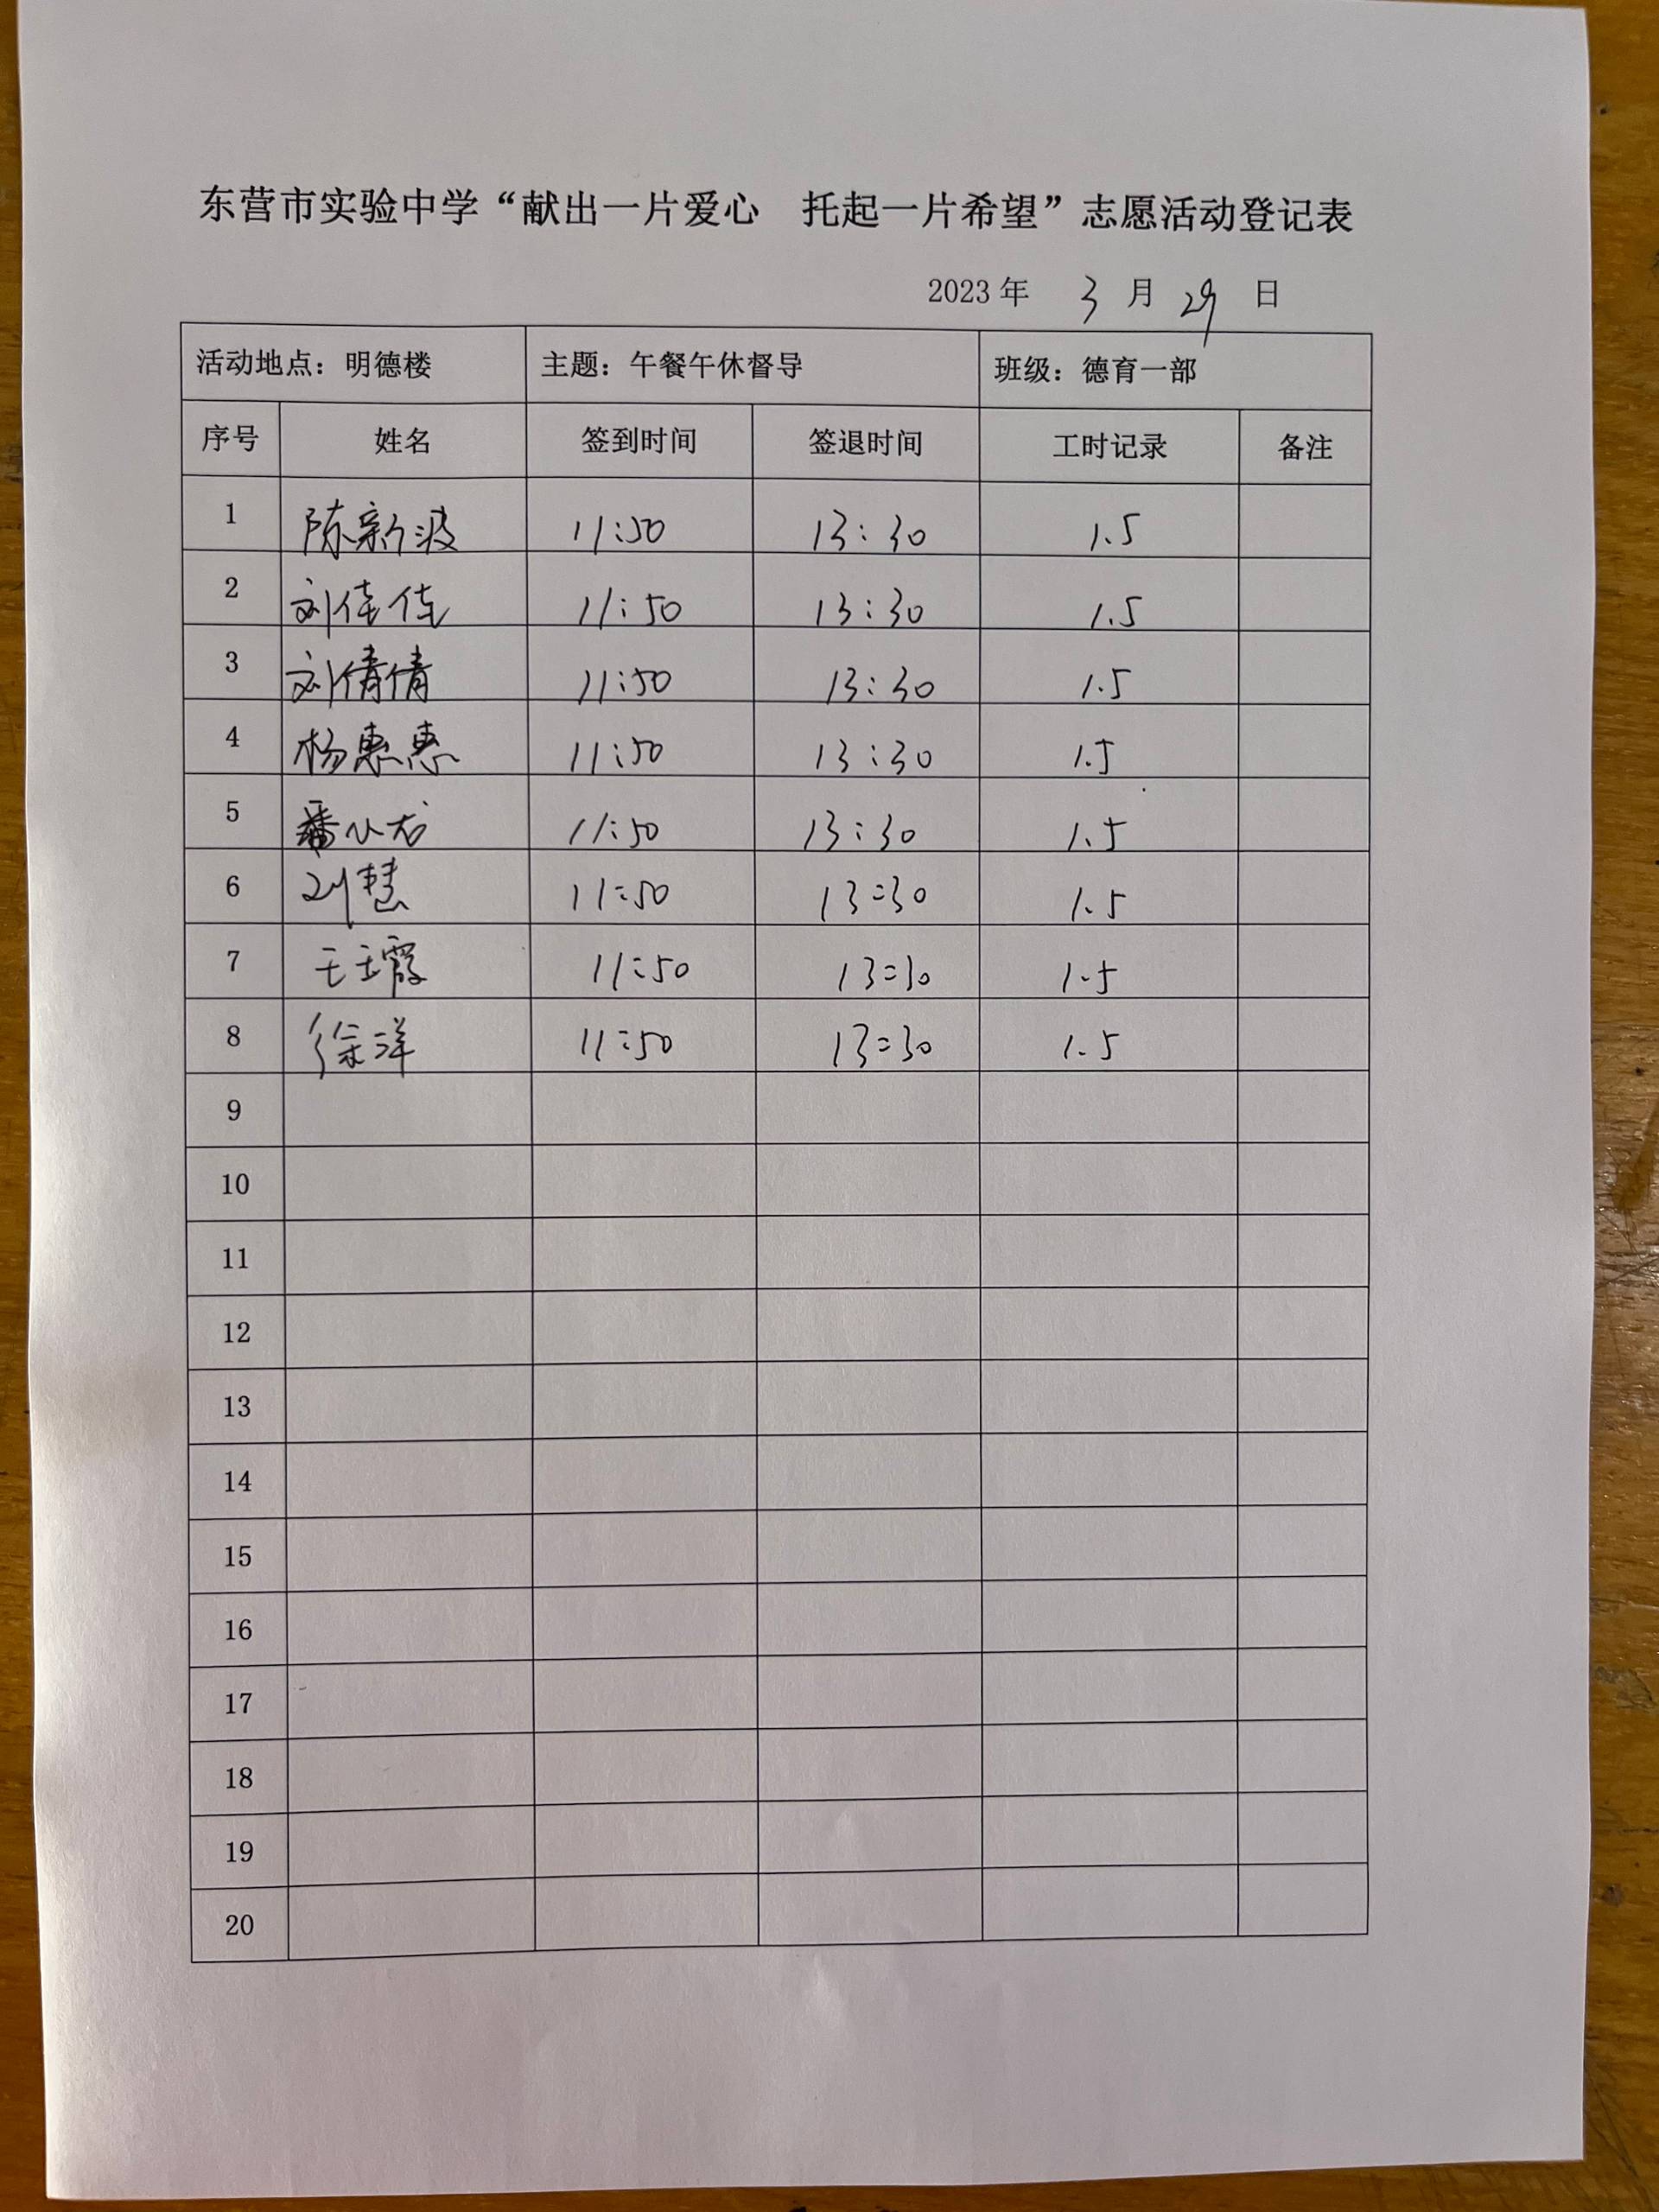 东营市实验中学“献出一片爱心 托起一片希望”志愿活动登记表
2023 年 3 月 29 日
活动地点：明德楼 主题：午餐午休督导 班级：德育一部
序号 姓名 签到时间 签退时间 工时记录 备注
1 陈新波 11:50 13:30 1.5
2 刘佳佳 11:50 13:30 1.5
3 刘倩倩 11:50 13:30 1.5
4 杨惠惠 11:50 13:30 1.5
5 潘小龙 11:50 13:30 1.5
6 刘慧 11:50 13:30 1.5
7 王玉霞 11:50 13:30 1.5
8 徐洋 11:50 13:30 1.5
9
10
11
12
13
14
15
16
17
18
19
20